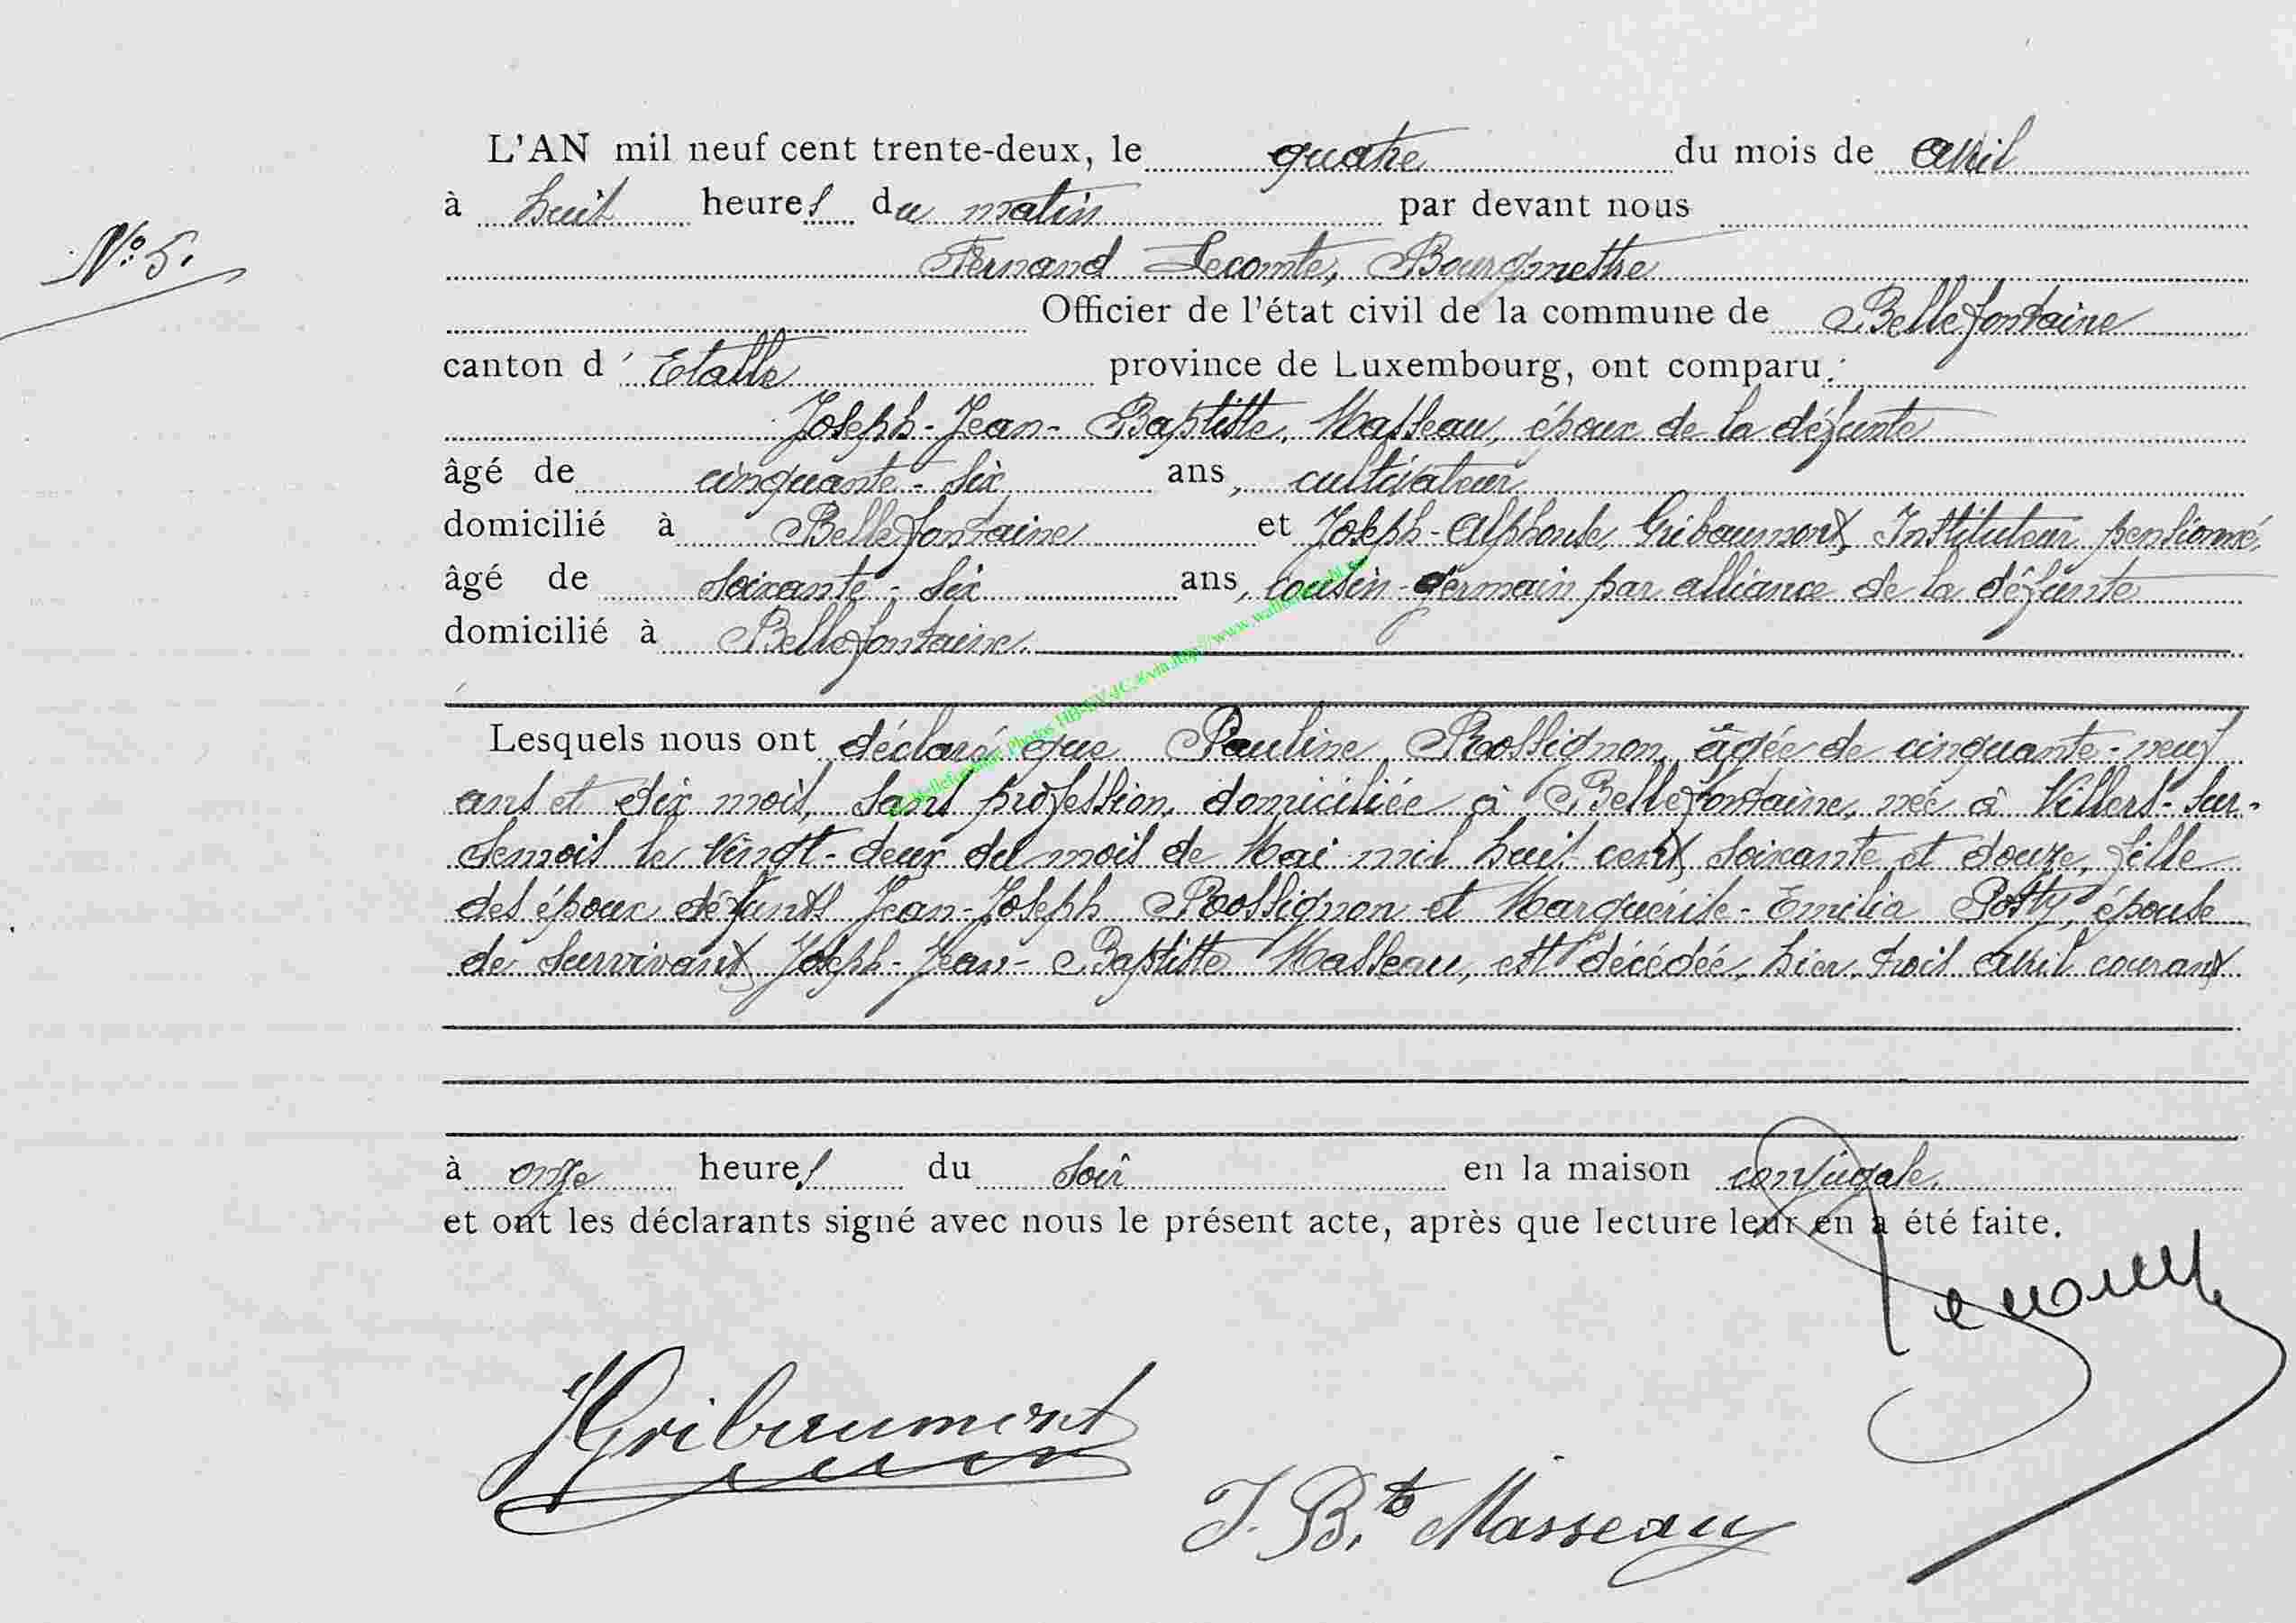 L'AN mil neuf cent trente-deux, le quatre du mois de avril
à huit heures du matin par devant nous
N° 5.
Fernand Lecomte, Bourgmestre
Officier de l'état civil de la commune de Bellefontaine
canton d'Etalle province de Luxembourg, ont comparu :
Joseph-Jean-Baptiste, Masseau, époux de la défunte
âgé de cinquante-six ans, cultivateur
domicilié à Bellefontaine et Joseph-Alphonse, Gribaumont, Instituteur pensionné,
âgé de soixante-six ans, cousin-germain par alliance de la défunte
domicilié à Bellefontaine.
Lesquels nous ont déclaré que Pauline Rossignon, âgée de cinquante-neuf
ans et dix mois, sans profession, domiciliée à Bellefontaine, née à Villers-sur-
Semois le vingt-deux du mois de Mai mil huit cent soixante et douze, fille
des époux défunts Jean-Joseph Rossignon et Marguérite-Emilia Potty, épouse
de survivant Joseph-Jean-Baptiste Masseau, est décédée, hier, trois avril courant
à onze heures du soir en la maison conjugale,
et ont les déclarants signé avec nous le présent acte, après que lecture leur en a été faite.
JGribaumont
J. B.te Masseau